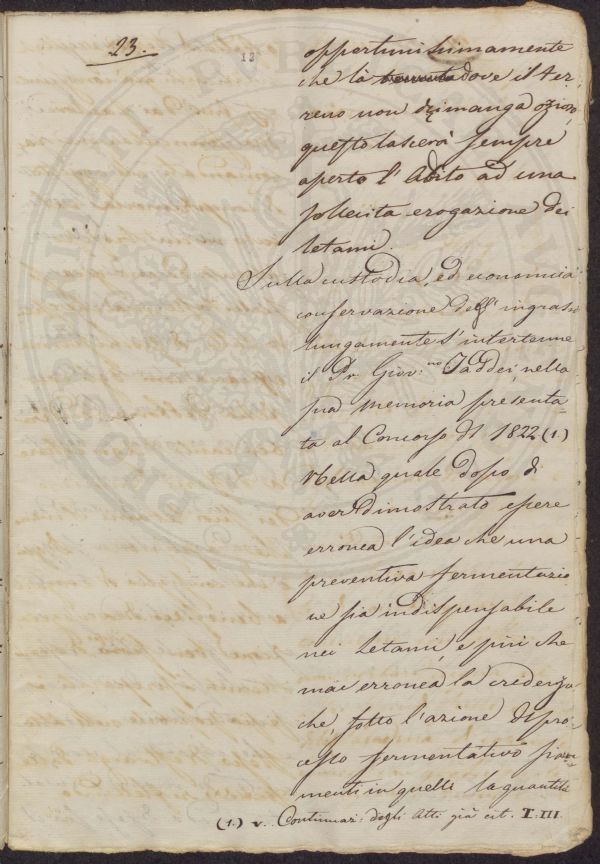 23.
12
opportunissimamente
che là dove il ter
reno non rimanga ozioso
questo lascerà sempre
aperto l'Adito ad una
sollecita erogazione dei
letami.
Sulla custodia, ed economica
conservazione degl'ingrassi
lungamente s'intertenne
il Pr. Giov:no Taddei, nella
sua memoria presenta-
ta al Concorso di 1822 (1.)
Nella quale dopo di
aver dimostrato essere
erronea l'idea che una
preventiva fermentazio
ne sia indispensabile
nei Letami, e più che
mai erronea la credenza
che, sotto l'azione di pro-
cesso fermentativo si au
menti in quelli la quantità
(1.) v. Continuaz: degli Atti già cit. T. III.